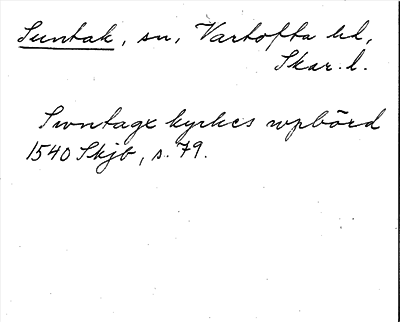 Suntak, sn, Vartofta hd,
Skar. l.
Swntagx kyrkes wpbörd
1540 Skjb, s. 79.